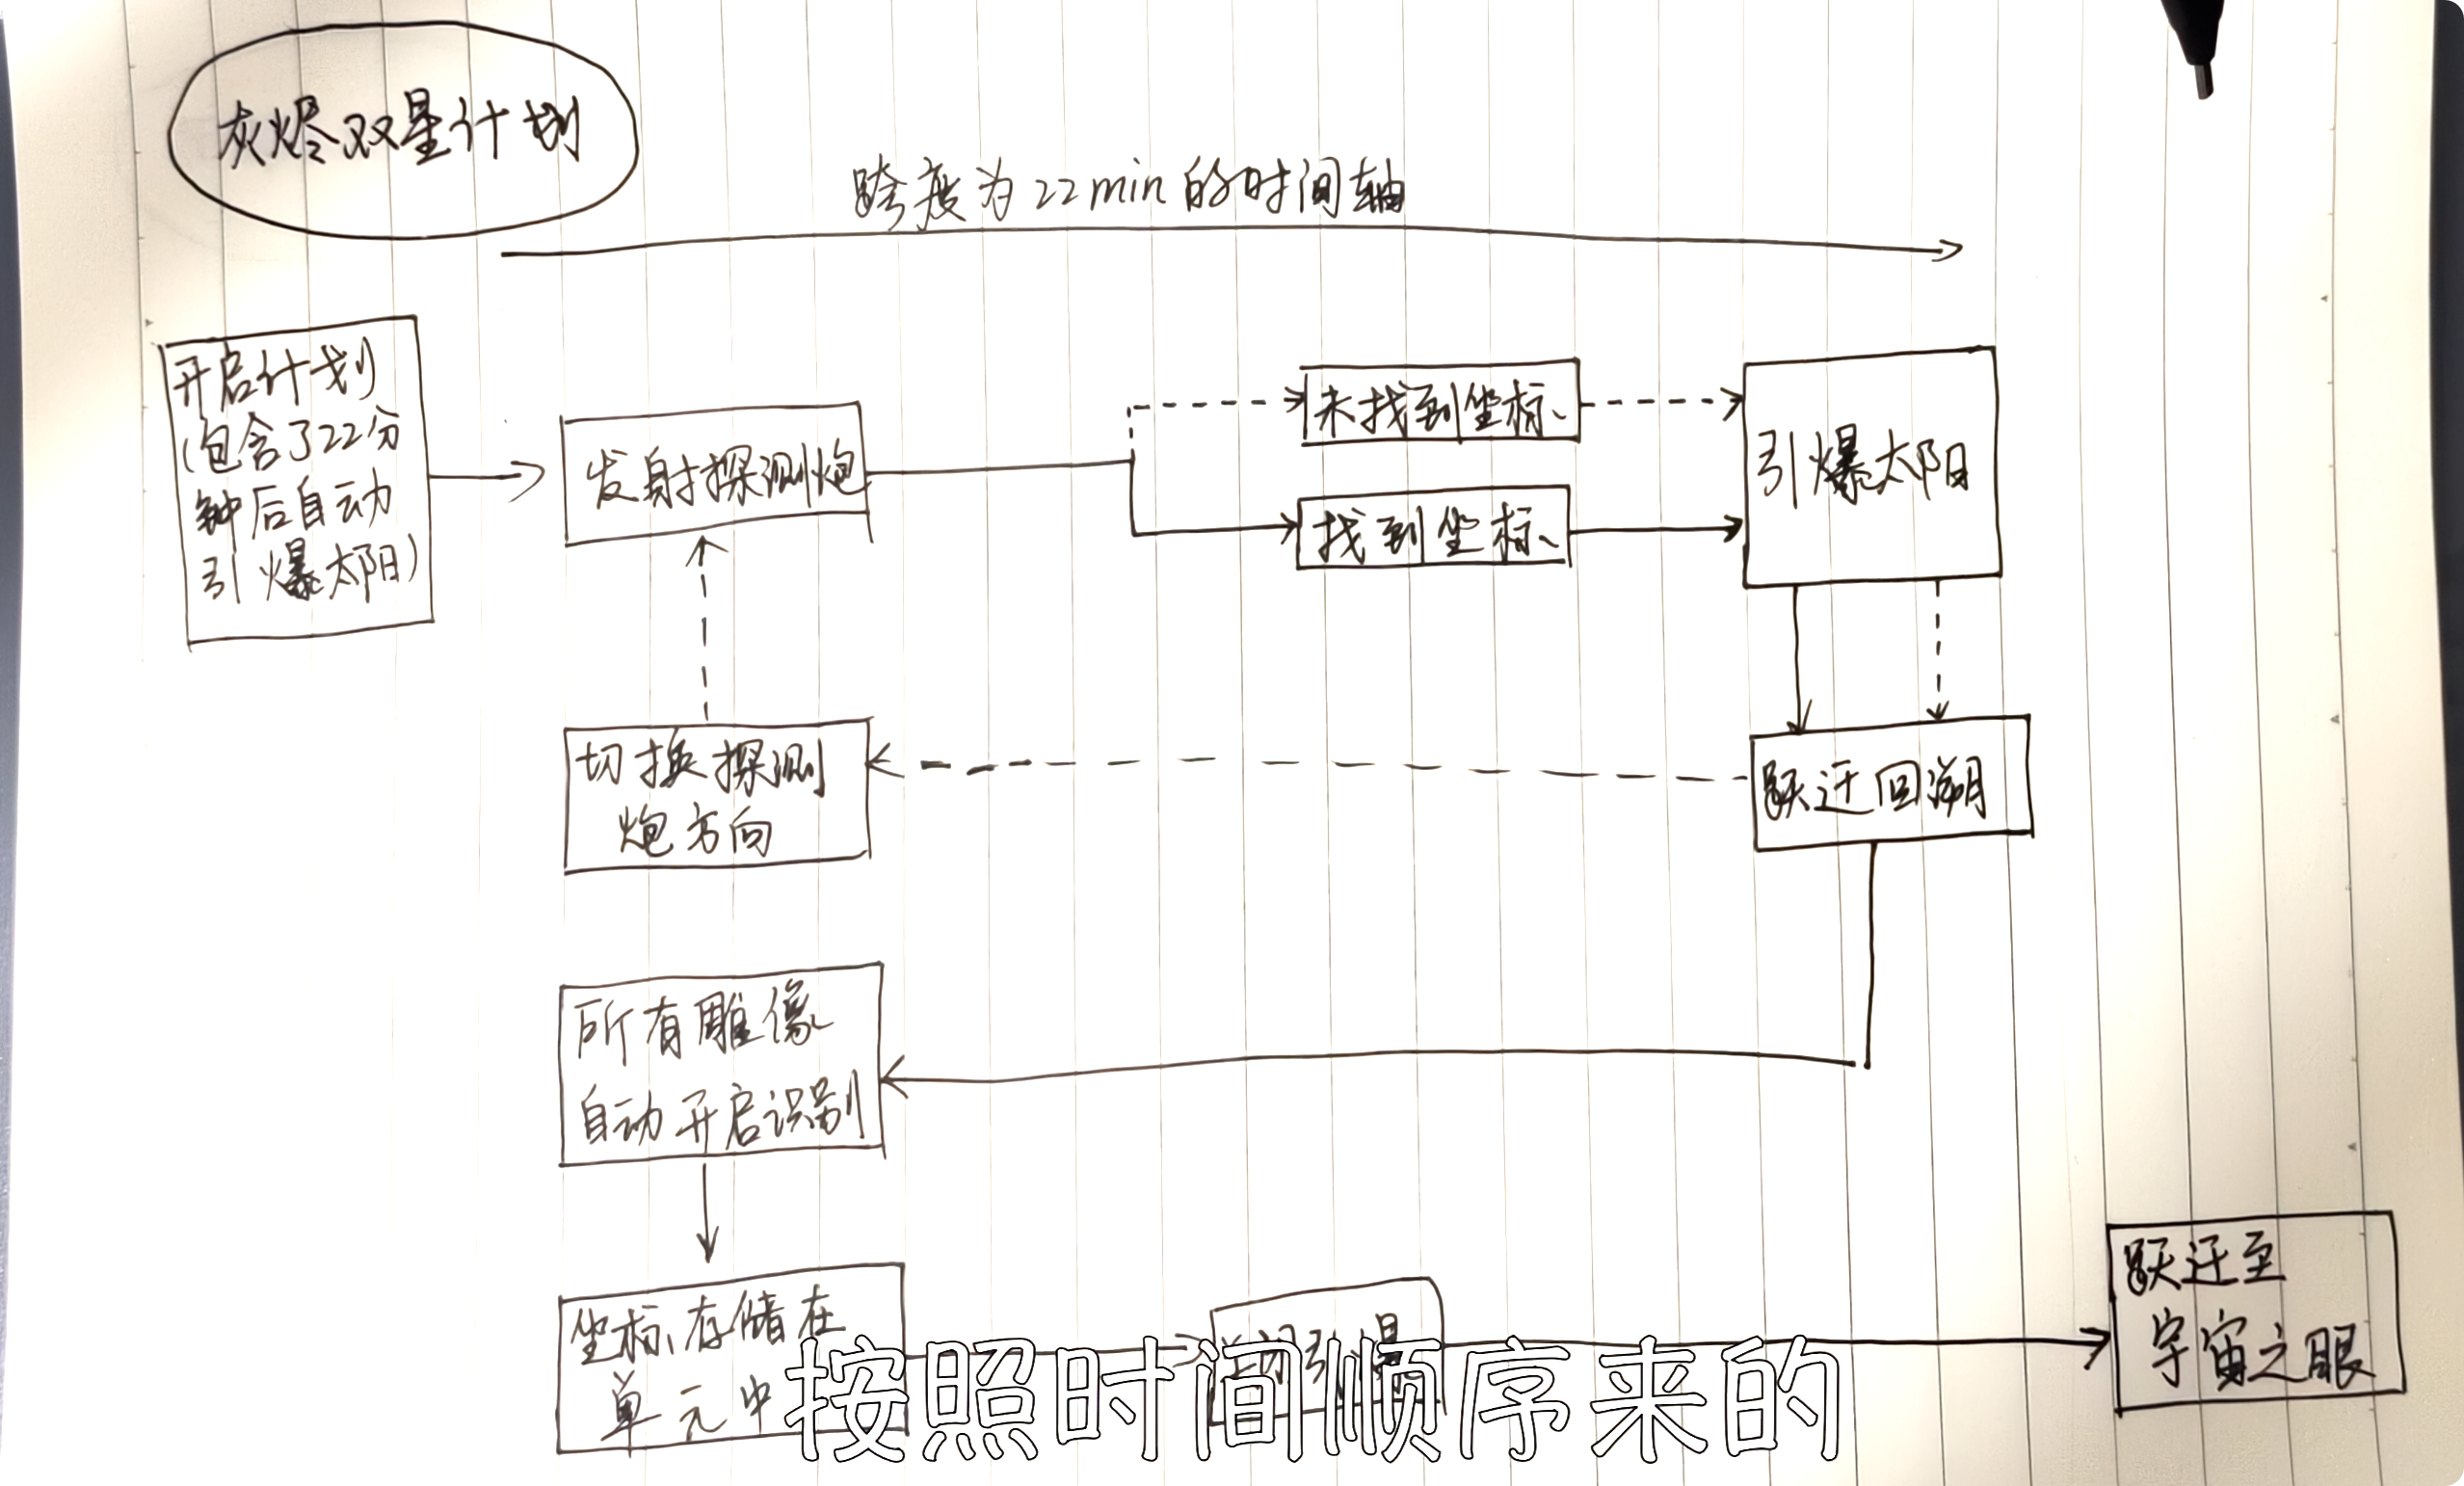 灰烬双星计划
跨度为22min的时间轴
开启计划
(包含了22分
钟后自动
引爆太阳)
发射探测炮
未找到坐标
找到坐标
引爆太阳
切换探测
炮方向
跃迁回溯
所有雕像
自动开启识别
坐标存储在
单元中
引爆
跃迁至
宇宙之眼
按照时间顺序来的